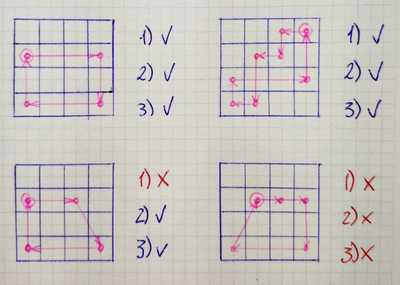 1) ✓
2) ✓
3) ✓
1) ✓
2) ✓
3) ✓
1) x
2) ✓
3) ✓
1) x
2) x
3) x